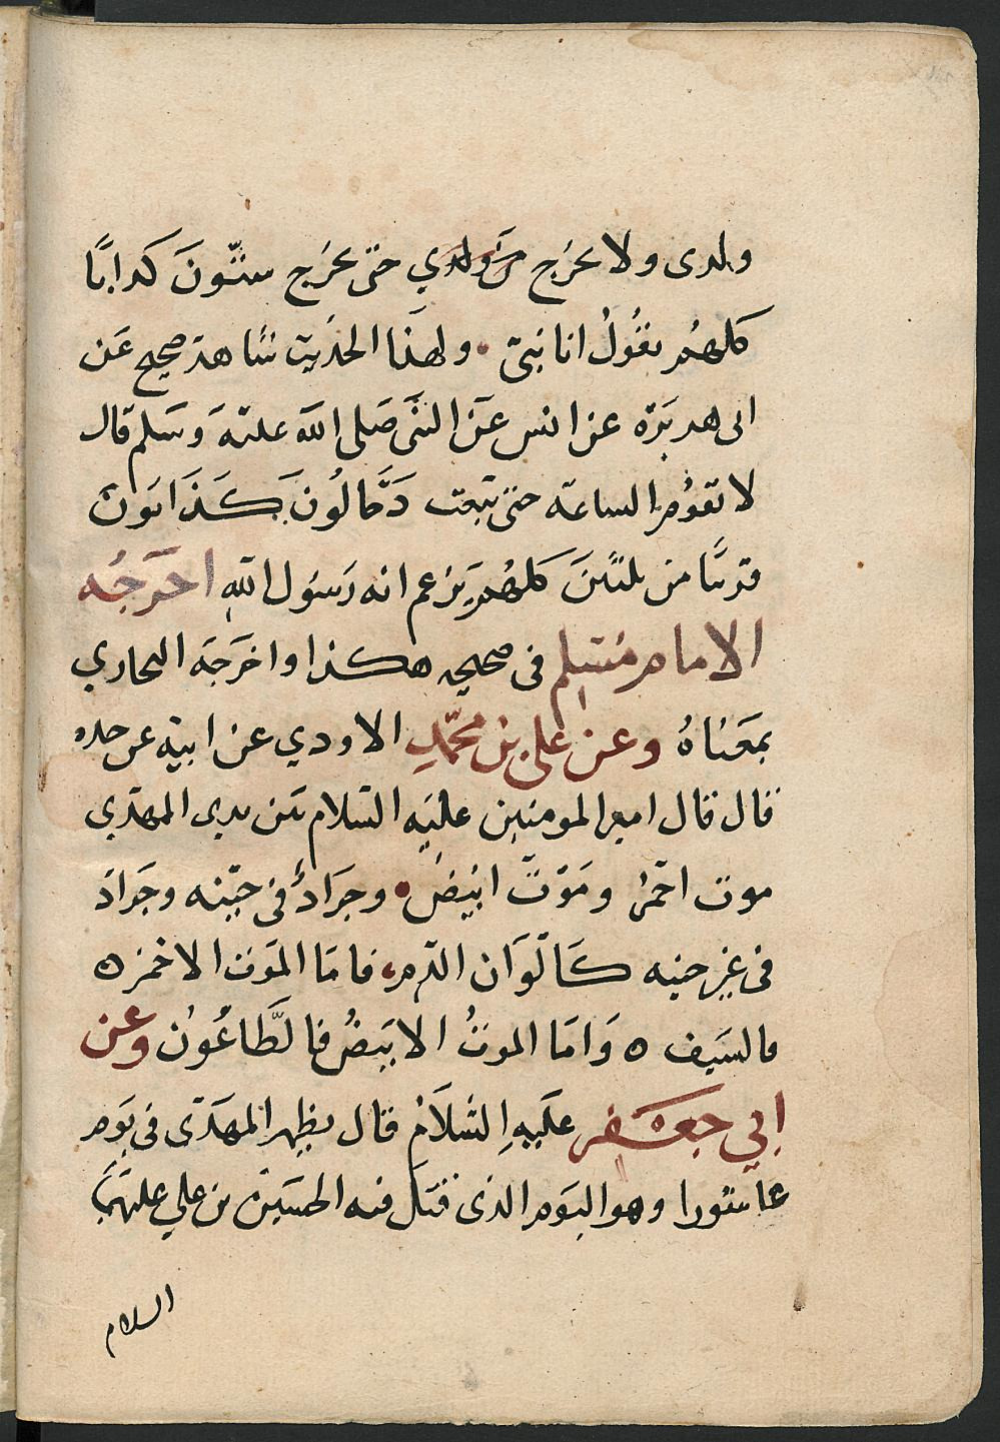 ولدى ولا يخرج من ولدي حتى يخرج ستّونَ كذابًا
كلهم يقُولُ انا نبىّ • ولهذا الحديث شاهد صحيح عَن
ابى هريَرة عن انس عَن النبَّى صَلى الله عليه وَسَلم قال
لا تقوُم الساعة حتى تبعث دَجّالُون كَذَابون
قريبًا من ثلثين كلهُم يَزعم انه رَسَول الله اخَرَجُه
الامام مُسلِم فى صحيحه هكذا واخرَجَه البخاري
بمعَناهُ وعن على بن محمّدِ الاودي عن ابيه عن جده
قال قال امير المومنين علَيه السَلام بَين يدى المهدَي
موت احَمرُ ومَوتٌ ابيَضُ • وجَرَادٌ فى حيَنه وجَرادَ
فى غير حينه كَالَوان الدّم، فامَا المَوت الاحمر ه
فالسَيف ه وَامَا الموتُ الابيَضُ فالطَّاعُون وعن
ابي جعَفَر علَيهِ السَّلَامُ قال يظهر المهدَى فى يوَم
عاشورا وهو اليوَم الذى قتَل فيه الحسَين بن علي عليهَما
السلام